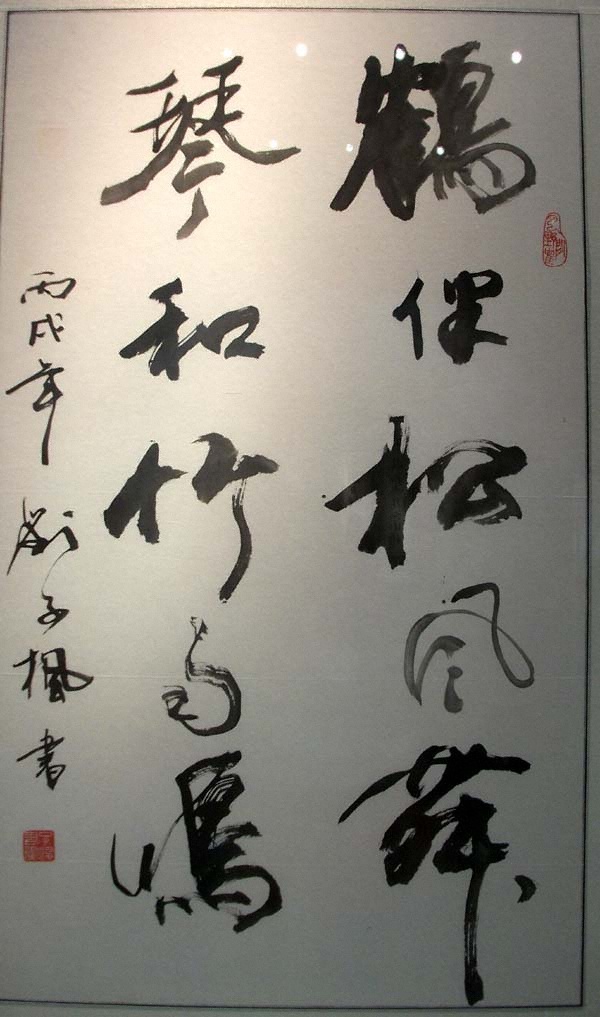 鶴伴松風舞
琴和竹雨鳴
丙戌年 劉子楓書